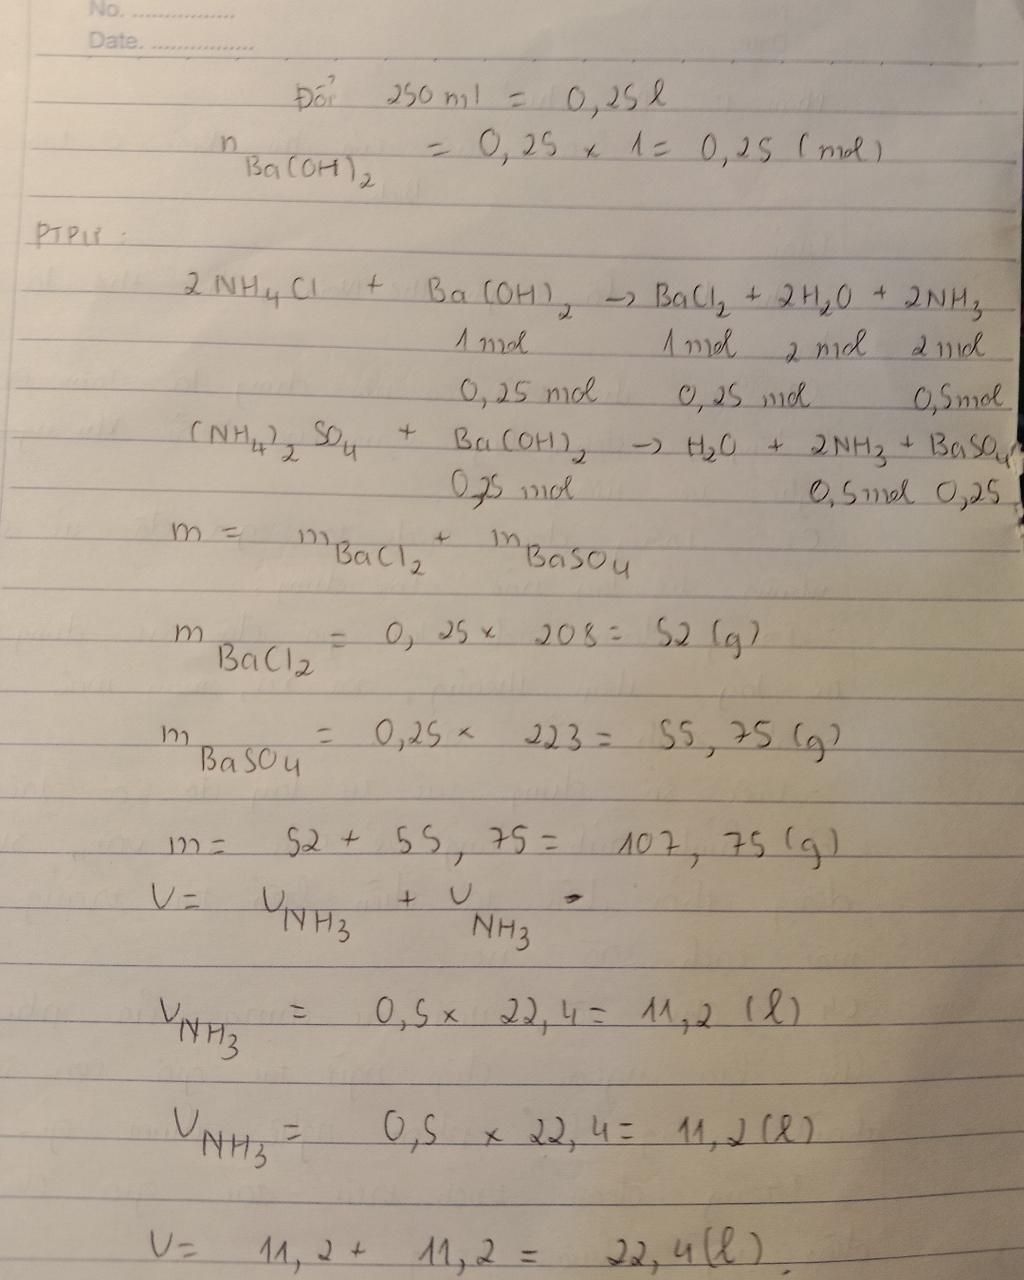 No. ................
Date. ................
Đổi 250 ml = 0,25 l
n Ba(OH)2 = 0,25 x 1 = 0,25 (mol)
PTPƯ :
2 NH4Cl + Ba(OH)2 → BaCl2 + 2H2O + 2NH3
1 mol 1 mol 2 mol 2 mol
0,25 mol 0,25 mol 0,5mol
(NH4)2 SO4 + Ba(OH)2 → H2O + 2NH3 + BaSO4
0,25 mol 0,5mol 0,25
m = m BaCl2 + m BaSO4
m BaCl2 = 0,25 x 208 = 52 (g)
m BaSO4 = 0,25 x 223 = 55,75 (g)
m = 52 + 55,75 = 107,75 (g)
V = V NH3 + V NH3
V NH3 = 0,5 x 22,4 = 11,2 (l)
V NH3 = 0,5 x 22,4 = 11,2 (l)
V = 11,2 + 11,2 = 22,4 (l).